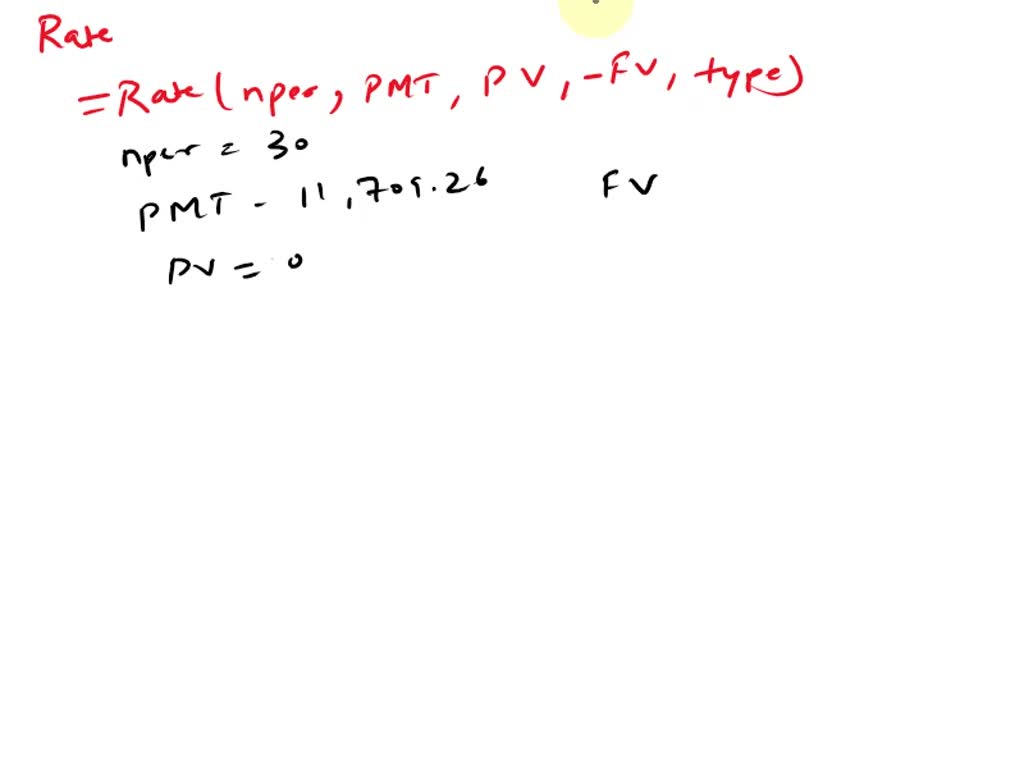 Rate
=Rate(nper, PMT, PV, -FV, type)
nper = 30
PMT - 11,709.26 FV
PV = 0